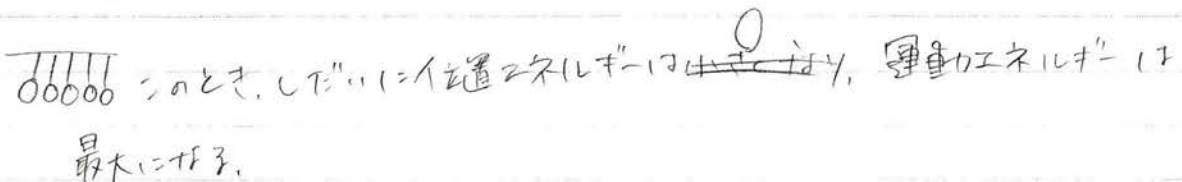 このとき、しだいに位置エネルギーは0、運動エネルギーは
最大になる、